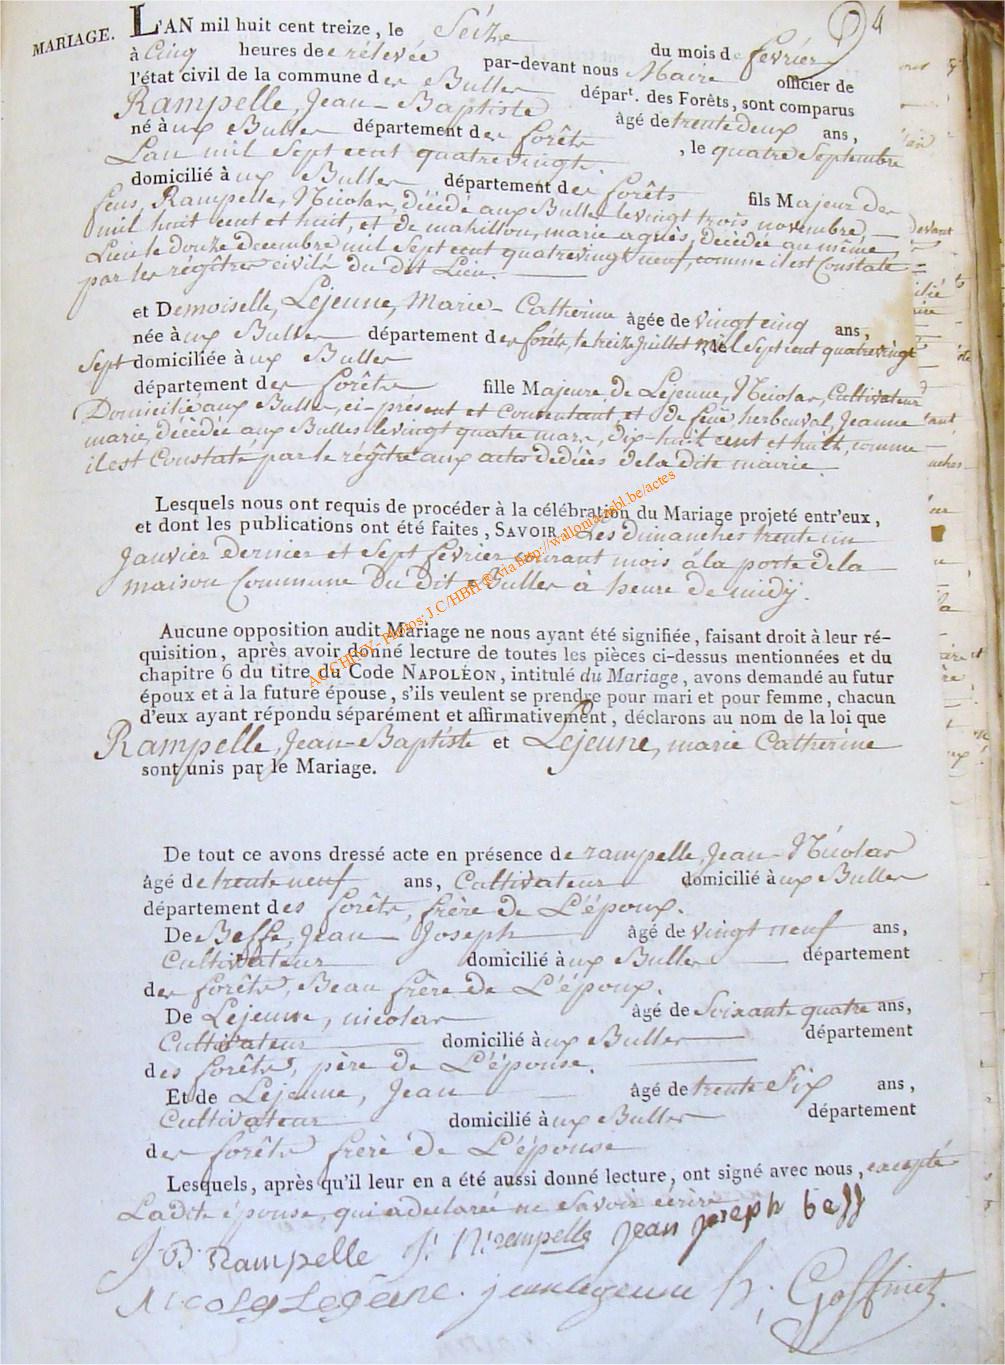 4
MARIAGE. L'AN mil huit cent treize, le Seize du mois de fevrier
à Cinq heures de relevée par-devant nous Maire officier de
l'état civil de la commune des Bulles départ. des Forêts, sont comparus
Rampelle, Jean-Baptiste âgé de trente deux ans,
né à ux Bulles département des forêts, le quatre Septembre
Lan mil Sept cent quatrevingt.
domicilié à ux Bulles département des forêts fils Majeur des
feus, Rampelle, Nicolas, décédé aux Bulles le vingt trois novembre
mil huit cent et huit, et de mahillon, marie agnès, décédée au même
Lieu le douze decembre mil Sept cent quatrevingt neuf, comme il est Constaté
par les régîtres civils du dit Lieu.
et Demoiselle, Lejeune, Marie-Catherine âgée de vingt cinq ans,
née à ux Bulles département des forêts, le treize Juillet mil Sept cent quatrevingt
Sept domiciliée à ux Bulles
département des forêts fille Majeure de Lejeune, Nicolas, Cultivateur
Domicilié aux Bulles, ci-présent et Consentant, et de feüe, herbeuval, Jeanne
marie, décédée aux Bulles le vingt quatre mars, dix-huit cent et huit, comme
il est Constaté par le régître aux actes de décès de la dite mairie.
Lesquels nous ont requis de procéder à la célébration du Mariage projeté entr'eux,
et dont les publications ont été faites, SAVOIR, Les dimanches trente un
Janvier dernier et Sept fevrier courant mois, à la porte de la
maison Commune du dit Bulles à heure de midÿ.
Aucune opposition audit Mariage ne nous ayant été signifiée, faisant droit à leur ré-
quisition, après avoir donné lecture de toutes les pièces ci-dessus mentionnées et du
chapitre 6 du titre du Code NAPOLÉON, intitulé du Mariage, avons demandé au futur
époux et à la future épouse, s'ils veulent se prendre pour mari et pour femme, chacun
d'eux ayant répondu séparément et affirmativement, déclarons au nom de la loi que
Rampelle, Jean-Baptiste et Lejeune, marie Catherine
sont unis par le Mariage.
De tout ce avons dressé acte en présence de rampelle, Jean-Nicolas
âgé de trente neuf ans, Cultivateur domicilié à ux Bulles
département des forêts, frère de L'époux.
De Beffe, Jean-Joseph âgé de vingt neuf ans,
Cultivateur domicilié à ux Bulles département
des forêts, Beau frère de L'époux.
De Lejeune, nicolas âgé de Soixante quatre ans,
Cultivateur domicilié à ux Bulles département
des forêts, père de L'épouse.
Et de Lejeune, Jean âgé de trente Six ans,
Cultivateur domicilié à ux Bulles département
des forêts frère de L'épouse
Lesquels, après qu'il leur en a été aussi donné lecture, ont signé avec nous, excepté
Ladite épouse, qui a declarée ne Savoir écrire
J. B. Rampelle J: N: rampelle Jean joseph beff
Nicolas Lejeune. jean lejeune h; Goffinet.